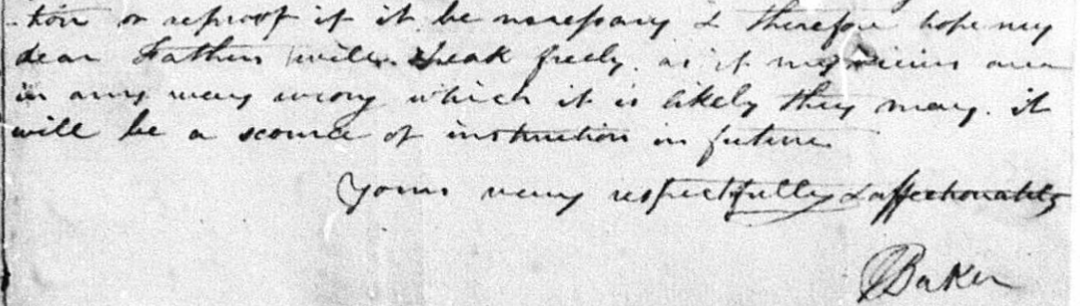 -tion or reproof if it be necessary I therefore hope my
dear Fathers will speak freely. as if my views are
in any way wrong which it is likely they may. it
will be a scource of instruction in future
Yours very respectfully & affectionately
Baker